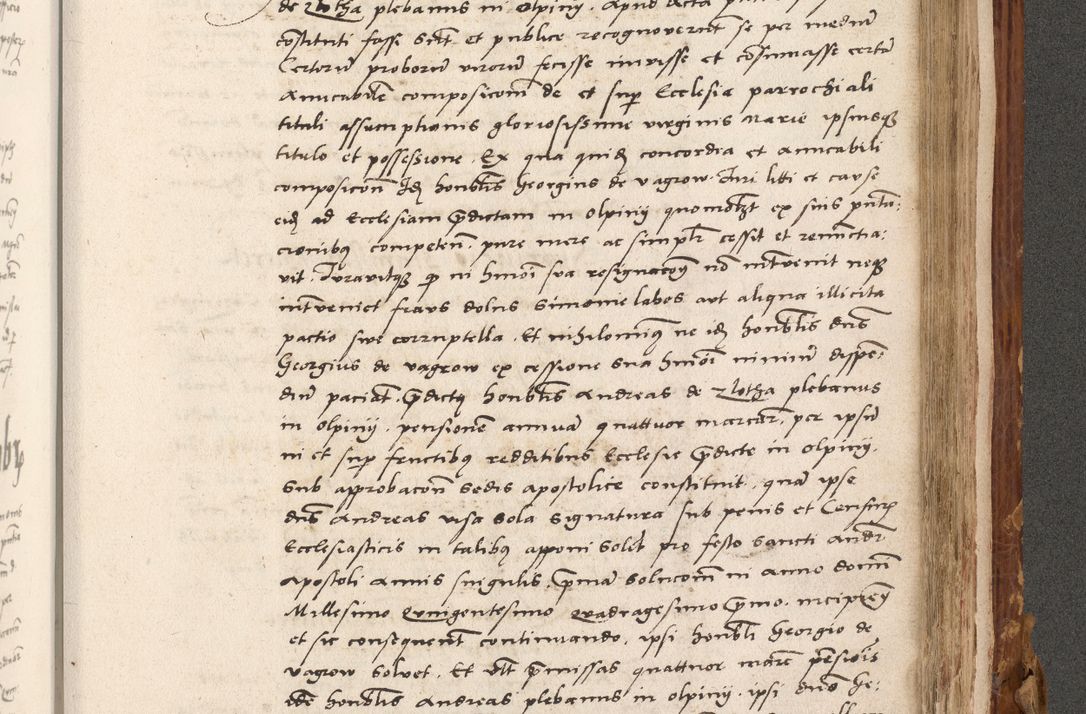 de Zlotha plebanus in Olpiny. Apud acta
cõstituti fassi sũt et publice recognoverũt se per mediũ
Certorũ proborũ virorũ fecisse inivisse et cõsumasse certã
Amicabilẽ composicoñ de et supꝛ Ecclesia parrochiali
tituli assumptionis gloriosissime virginis Marie ipsiusqꝫ
titulo et possessione. Ex qua quidẽ concordia et amicabili
composicoñ Idẽ honblis Georgius de Vagrow. Juri liti et cause
eidẽ ad Ecclesiam p̃dictam in Olpinij quomolꝫt ex suis pñta:
cionibꝫ competeñ. pure mere ac simplr̃ cessit et renuncia:
vit. Juravitqꝫ qꝛ in hmõi sua resignacoẽ nõ intvenit neqꝫ
intveniet fraus dolus Simonie labes aut aliqua illicita
pactio sive corruptella. Et nihilominꝫ ne idẽ honblis dñs
Georgius de Vagrow ex cessione sua hmõi nimiũ dispẽ:
diũ paciat̃. p̃dictꝫ honblis Andreas de Zlotha plebanus
in Olpinij. pensionẽ annuã quattuor marcarꝛ. per ipsũ
in et supꝛ fructibꝫ redditibus Ecclesie p̃dicte in Olpinij.
Sub approbacoñ Sedis Apostolice constituit. quã ipse
dñs Andreas visa sola Signatura sub penis et Censurꝭ
Ecclesiasticis in talibꝫ apponi solit̃ pro festo Sancti Andrẽ
Apostoli Annis singulis. p̃mã solucoñ in Anno domĩ
Millesimo Quingentesimo Quadragesimo p̃mo. incipieñ
et sic consequent̃ continuando. ipsi honbli Georgio de
Vagrow solvet. Et vlt̃ p̃missas quattuor marc̃ pẽsiõis
idẽ honblis Andreas plebanus in Olpinij. ipsi dño Ge: